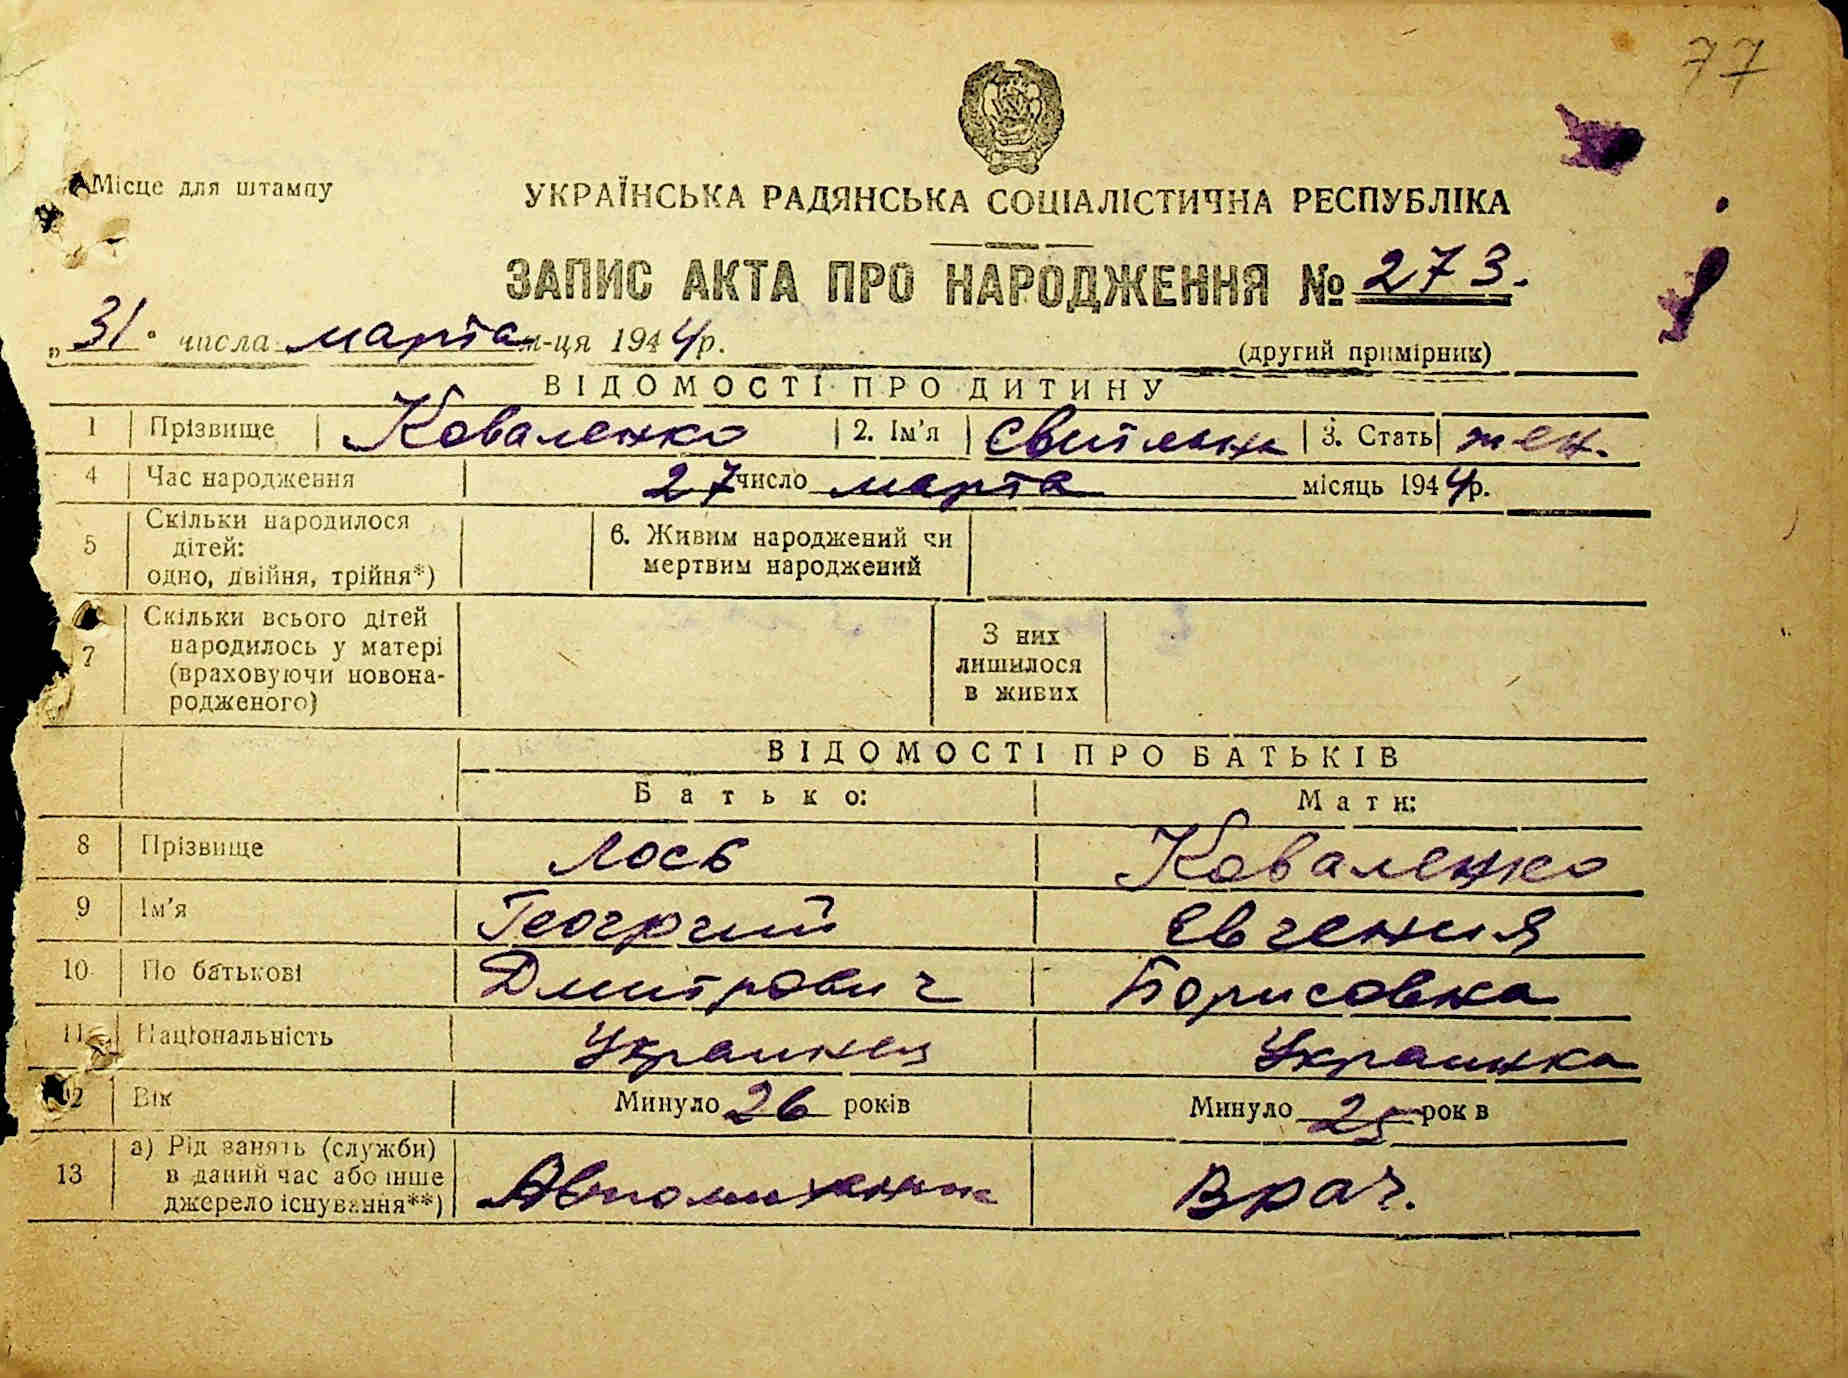 77
Місце для штампу
УКРАЇНСЬКА РАДЯНСЬКА СОЦІАЛІСТИЧНА РЕСПУБЛІКА
ЗАПИС АКТА ПРО НАРОДЖЕННЯ № 273.
„31" числа марта м-ця 1944р.
(другий примірник)
ВІДОМОСТІ ПРО ДИТИНУ
1 Прізвище Коваленко 2. Ім'я 3. Стать жен.
4 Час народження 27 число марта місяць 1944р.
5 Скільки народилося
дітей:
одно, двійня, трійня*)
6. Живим народжений чи
мертвим народжений
7 Скільки всього дітей
народилось у матері
(враховуючи новона-
родженого)
З них
лишилося
в живих
ВІДОМОСТІ ПРО БАТЬКІВ
Батько: Мати:
8 Прізвище Лось Коваленко
9 Ім'я Георгий Евгения
10 По батькові Дмитрович Борисовна
11 Національність Украинец Украинка
12 Вік Минуло 26 років Минуло 25 рок в
13 а) Рід занять (служби)
в даний час або інше
джерело існування**)
Автомеханик Врач.